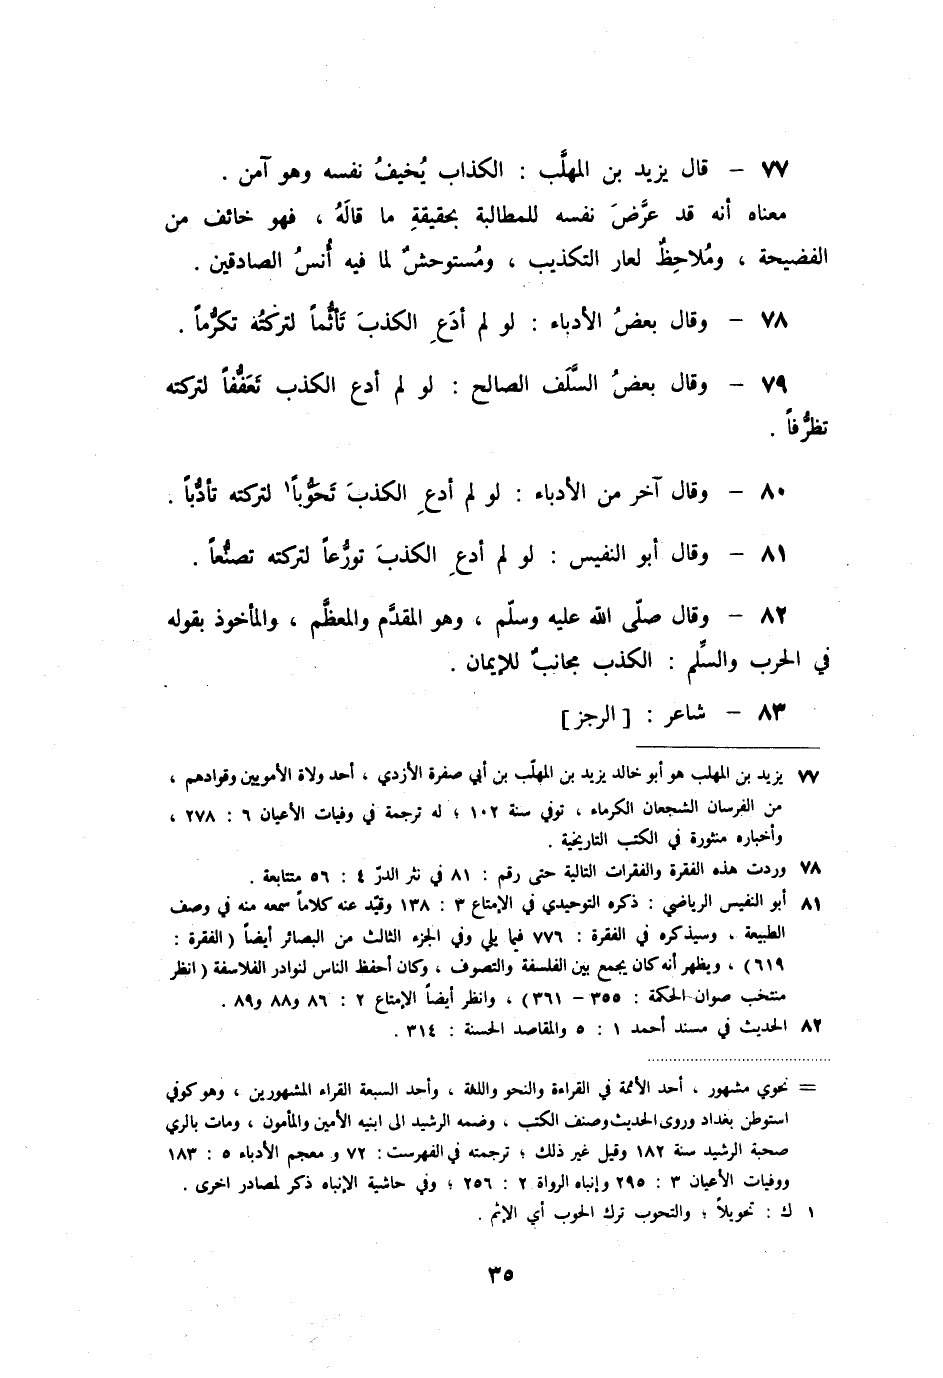 ٧٧ – قال يزيد بن المهلَّب : الكذاب يُخيفُ نفسه وهو آمن .
معناه أنه قد عرَّضَ نفسه للمطالبة بحقيقةِ ما قالَهُ ، فهو خائف من
الفضيحة ، ومُلاحِظٌ لعار التكذيب ، ومُستوحشٌ لما فيه أُنسُ الصادقين .
٧٨ – وقال بعضُ الأدباء : لو لم أدَعِ الكذبَ تَأثُّماً لتركتُه تكرُّماً .
٧٩ – وقال بعضُ السَّلَف الصالح : لو لم أدع الكذب تَعَفُّفاً لتركته
تظرُّفاً .
٨٠ – وقال آخر من الأدباء : لو لم أدعِ الكذبَ تَحَوُّباً١ لتركته تأدُّباً .
٨١ – وقال أبو النفيس : لو لم أدعِ الكذبَ تورُّعاً لتركته تصنُّعاً .
٨٢ – وقال صلّى الله عليه وسلّم ، وهو المقدَّم والمعظَّم ، والمأخوذ بقوله
في الحرب والسِّلم : الكذب مجانبٌ للإيمان .
٨٣ – شاعر : [ الرجز ]
٧٧ يزيد بن المهلب هو أبو خالد يزيد بن المهلّب بن أبي صفرة الأزدي ، أحد ولاة الأمويين وقوادهم ،
من الفرسان الشجعان الكرماء ، توفي سنة ١٠٢ ؛ له ترجمة في وفيات الأعيان ٦ : ٢٧٨ ،
وأخباره منثورة في الكتب التاريخية .
٧٨ وردت هذه الفقرة والفقرات التالية حتى رقم : ٨١ في نثر الدرّ ٤ : ٥٦ متتابعة .
٨١ أبو النفيس الرياضي : ذكره التوحيدي في الإمتاع ٣ : ١٣٨ وقيّد عنه كلاماً سمعه منه في وصف
الطبيعة . وسيذكره في الفقرة : ٧٧٦ فيما يلي وفي الجزء الثالث من البصائر أيضاً ( الفقرة :
٦١٩ ) ، ويظهر أنه كان يجمع بين الفلسفة والتصوف ، وكان أحفظ الناس لنوادر الفلاسفة ( انظر
منتخب صوان الحكمة : ٣٥٥ – ٣٦١ ) ، وانظر أيضاً الإمتاع ٢ : ٨٦ و٨٨ و٨٩ .
٨٢ الحديث في مسند أحمد ١ : ٥ والمقاصد الحسنة : ٣١٤ .
= نحوي مشهور ، أحد الأئمة في القراءة والنحو واللغة ، وأحد السبعة القراء المشهورين ، وهو كوفي
استوطن بغداد وروى الحديث وصنف الكتب ، وضمه الرشيد الى ابنيه الأمين والمأمون ، ومات بالري
صحبة الرشيد سنة ١٨٢ وقيل غير ذلك ؛ ترجمته في الفهرست : ٧٢ و معجم الأدباء ٥ : ١٨٣
ووفيات الأعيان ٣ : ٢٩٥ وإنباه الرواة ٢ : ٢٥٦ ؛ وفي حاشية الإنباه ذكر لمصادر اخرى .
١ ك : تحويلاً ؛ والتحوب ترك الحوب أي الإثم .
٣٥